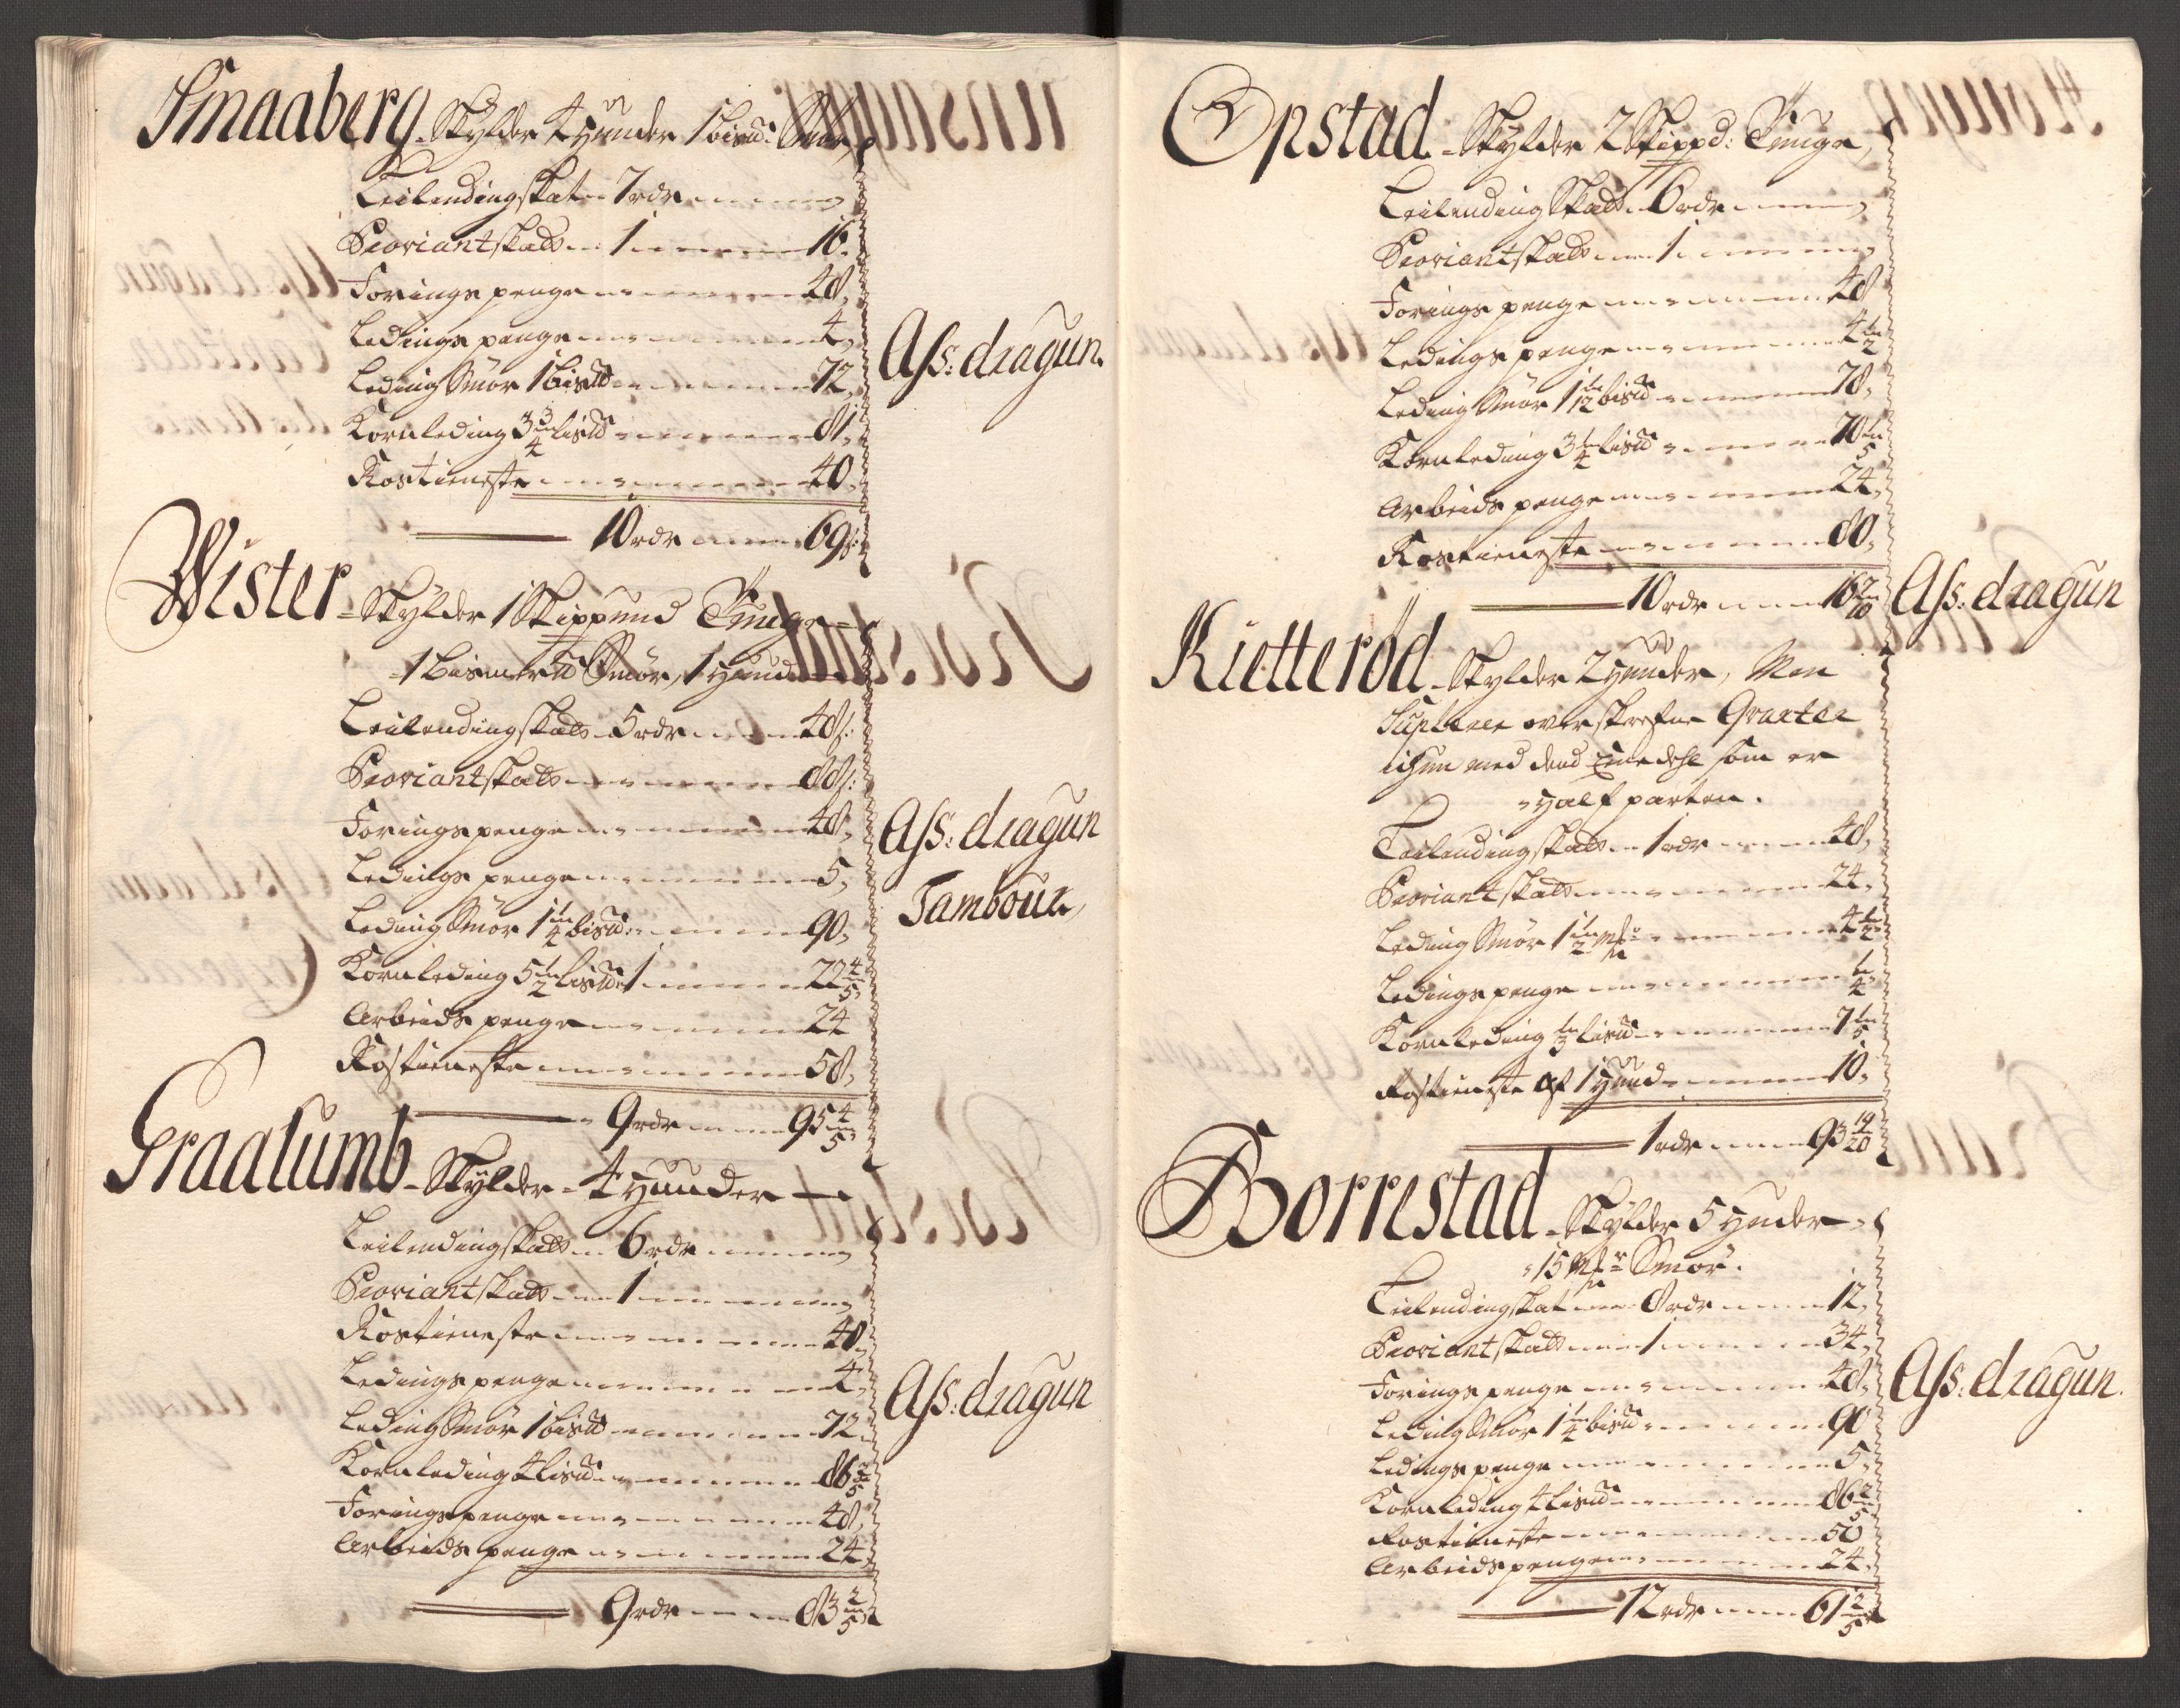 Smaaberg Skylder 4 hunder 1 bisd: Smør
Leilendingskat - 7 rdr
Proviantskatt - 1 - 16.
Forings penge - 48,
Ledings penge - 4,
Leding Smør 1 bisd - 72,
Kornleding 3 3/4 lisd - 81.
Rostieneste - 40,
10 rdr - 69 s:
Ass: dragun.
Wister - Skylder 1 Skippund Tunge -
1 bismerd Smør, 1 hund
Leilendingskatt - 5 rdr - 48 s:
Proviantskatt - 88 s:
Forings penge - 48,
Ledings penge - 5,
Leding Smør 1 1/4 bisd: - 90,
Kornleding 5 1/2 lisd: 1 - 22 4/5,
Arbeids penge - 24
Rostieneste - 58,
9 rdr - 95 4/5,
Ass: dragun
Tambour,
Graalumb - Skylder - 4 hunder
Leilendingskatt - 6 rdr
Proviantskatt - 1
Rostieneste - 40,
Ledings penge - 4,
Leding Smør 1 bisd - 72
Kornleding 4 lisd - 86 2/5
Forings penge - 48,
Arbeids penge - 24,
9 rdr - 83 2/5 s
Ass: dragun
Opstad - Skylder 2 Skippd: Tunge,
Leilending Skatt - 6 rdr
Proviantskatt - 1
Forings penge - 48
Ledings penge - 4 1/2
Leding Smør 1 1/12 bisd - 78,
Kornleding 3 1/4 lisd - 70 1/5
Arbeids penge - 24,
Rostieneste - 80,
10 rdr - 16 7/10
Ass: dragun
Kietterød - Skylder 2 hunder, Men
overskrefne Qvarter
med dend Eene dehl som er
halfparten.
Leilendingskatt - 1 rdr - 48,
Proviantskatt - 24,
Leding Smør 1 1/2 - 4 1/2
Ledings penge - 1/4
Kornleding 1/3 lisd - 7 1/5
Rostieneste af 1 hund - 10,
1 rdr - 93 19/20
Borrestad - Skylder 5 hunder -
15 Smør.
Leilendingskat - 8 rdr - 12,
Proviantskatt - 1 - 34,
Forings penge - 48,
Leding Smør 1 1/4 bisd - 90
Ledings penge - 5,
Kornleding 4 lisd - 86 2/5
Rostieneste - 50
Arbeids penge - 24,
12 rdr - 61 2/5
Ass: dragun.